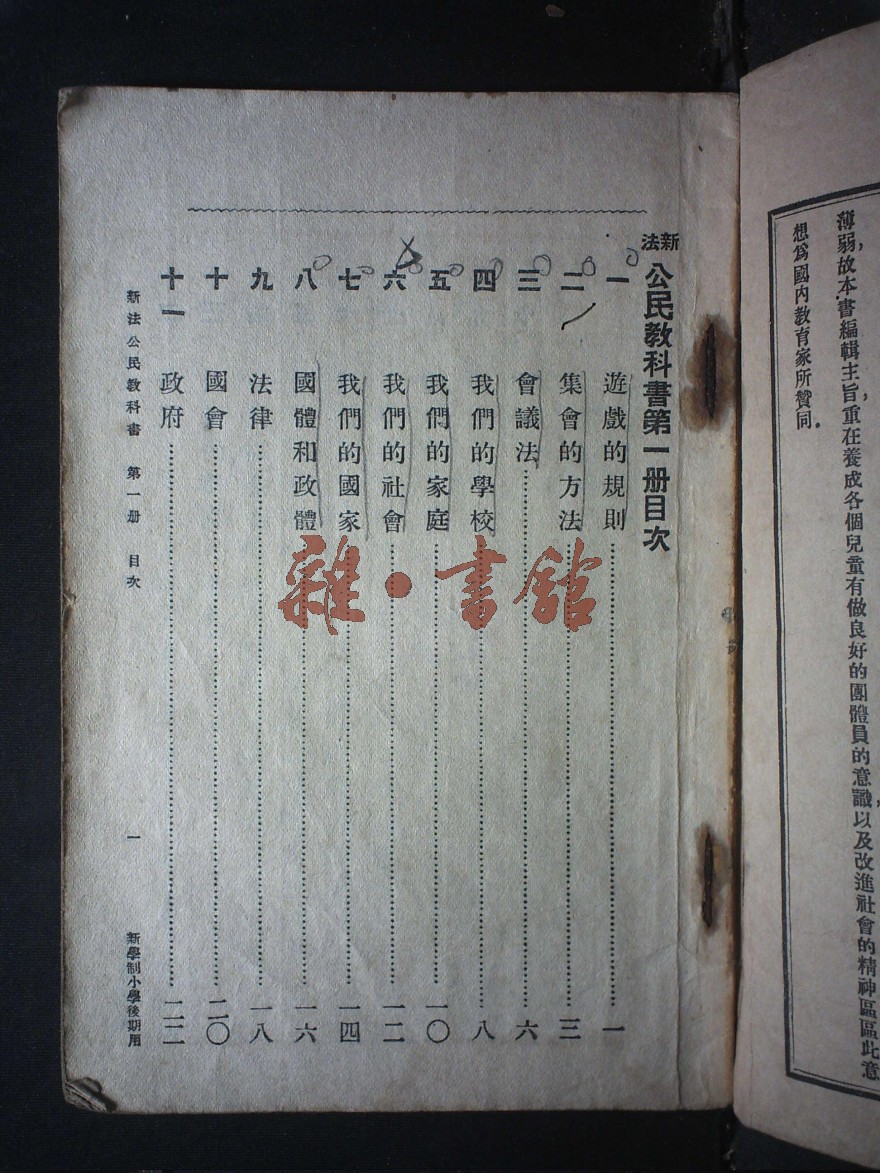 薄弱，故本書編輯主旨，重在養成各個兒童有做良好的團體員的意識，以及改進社會的精神區區此意
想爲國內教育家所贊同．
新法公民教科書第一册目次
一 遊戲的規則……一
二 集會的方法……三
三 會議法……六
四 我們的學校……八
五 我們的家庭……一〇
六 我們的社會……一二
七 我們的國家……一四
八 國體和政體……一六
九 法律……一八
十 國會……二〇
十一 政府……二二
新法公民教科書 第一册 目次 一 新學制小學後期用
雜·書館